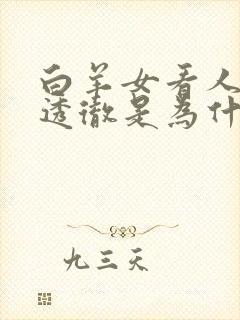 白羊女看人
透徹是為什
九三天